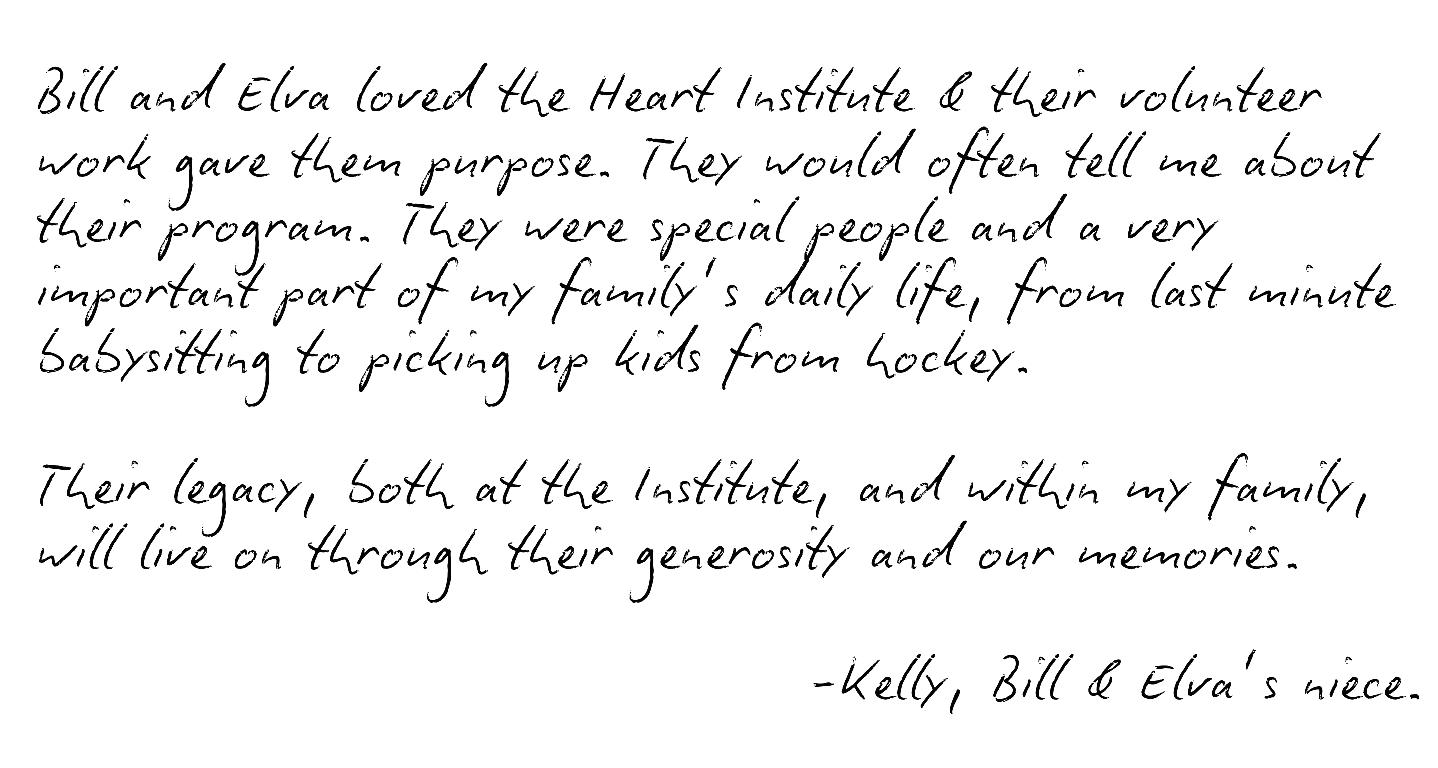 Bill and Elva loved the Heart Institute & their volunteer
work gave them purpose. They would often tell me about
their program. They were special people and a very
important part of my family's daily life, from last minute
babysitting to picking up kids from hockey.
Their legacy, both at the Institute, and within my family,
will live on through their generosity and our memories.
-Kelly, Bill & Elva's niece.